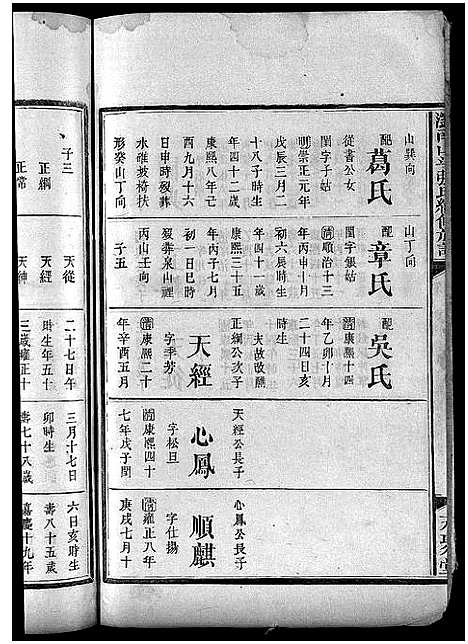 山巽向
配葛氏
從書公女
閨字子姑
明崇正元年
戊辰三月二
十八子時生
年四十二歲
康熙八年己
酉九月十六
日申時歿葬
水碓坡椅扶
形癸山丁向
山丁向
配章氏
閨字銀姑
清順治十三
年丙申十月
初六辰時生
年四十一歲
康熙三十五
年丙子七月
初一日巳時
歿葬泉山裡
丙山壬向
子五
配吳氏
清康熙十四
年乙卯十月
二十四日亥
時生
夫故改醮
天經
正綱公次子
字季芳
清康熙二十
年辛酉五月
心鳳
天經公長子
字松旦
清康熙四十
七年戊子閏
順麒
心鳳公長子
字仕揚
清雍正八年
庚戌七月十
子三
正綱
正常
天從
天經
天神
二十七日午
時生
三歲雍正十
三月十七日
卯時生
壽七十八歲
六日亥時生
壽八十五歲
嘉慶十九年